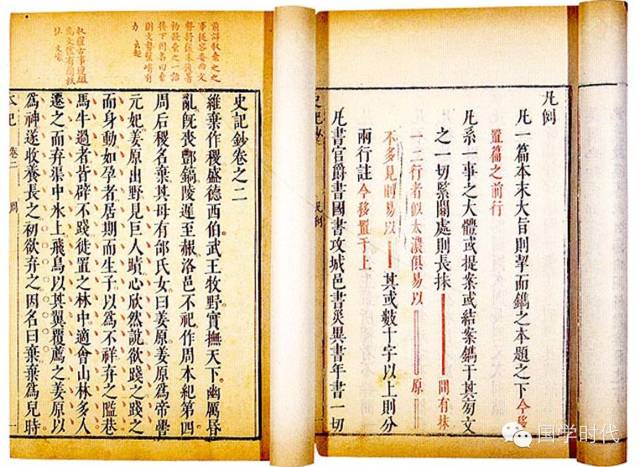 凡例
凡一篇本末大旨則挈而鐫之本題之下今移
置篇之前行
凡系一事之大體或提案或結案鐫于其旁文
之一切緊關處則長抹 間有抹
一二行者似太濃俱易以 原
不多見則易以 其或數十字以上則分
兩行註今移置于上
凡書官爵書國書攻城邑書災異書年書一切
凡例
史記鈔卷之二
維棄作稷盛德西伯武王牧野實撫天下幽厲昏
亂既喪酆鎬陵遲至赧洛邑不祀作周本紀第四
周后稷名棄其母有邰氏女曰姜原姜原為帝嚳
元妃姜原出野見巨人跡心欣然說欲踐之踐之
而身動如孕者居期而生子以為不祥弃之隘巷
馬牛過者皆辟不踐徙置之林中適會山林多人
遷之而弃渠中氷上飛鳥以其翼覆薦之姜原以
為神遂收養長之初欲弃之因名曰棄棄為兒時
本紀 卷二 周
国学时代